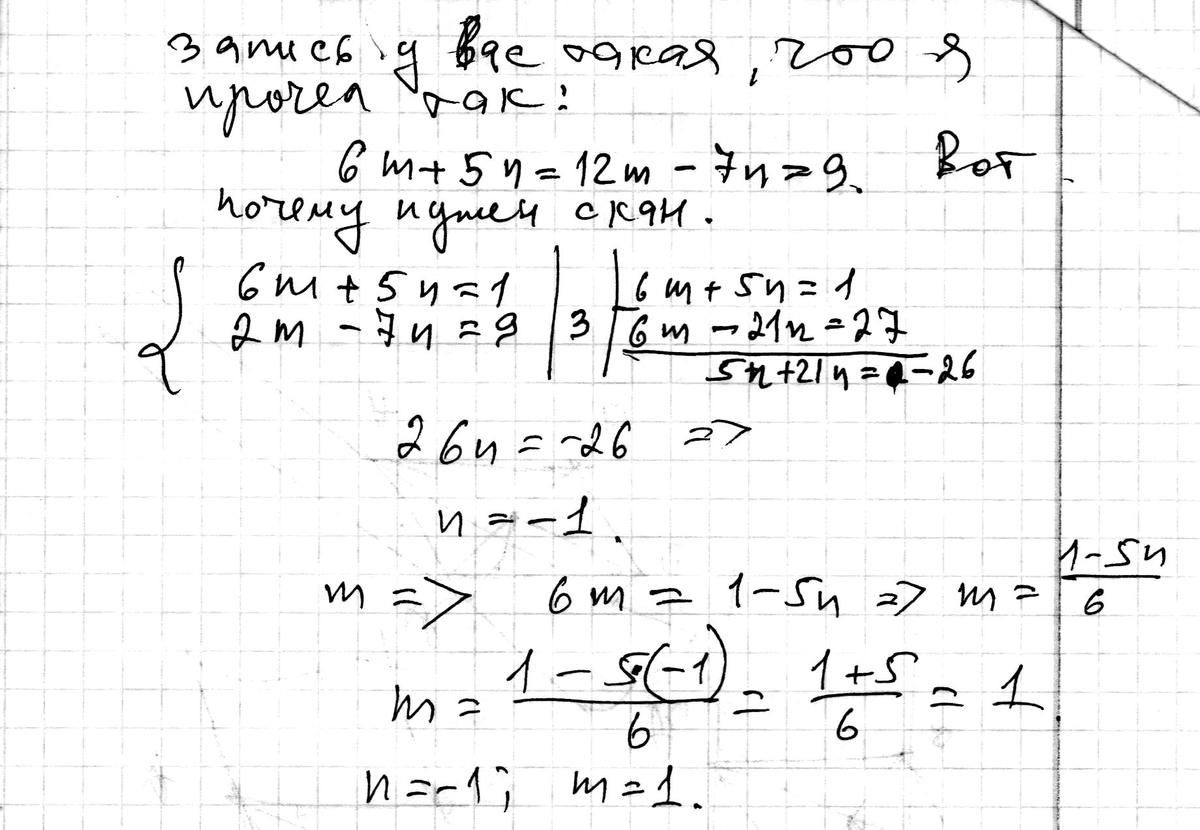 запись у вас такая, что я
прочел так:
6m + 5n = 12m - 7n = 9. Вот
почему нужен скан.
{ 6m + 5n = 1 | | 6m + 5n = 1
2m - 7n = 9 | 3 | 6m - 21n = 27
5n + 21n = -26
26n = -26 =>
n = -1.
m => 6m = 1 - 5n => m = (1-5n)/6
m = (1 - 5·(-1))/6 = (1+5)/6 = 1.
n = -1; m = 1.